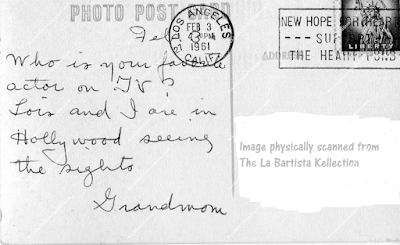 PHOTO POST CARD
LOS ANGELES
FEB 3
4 PM
1961
CALIF.
NEW HOPE FOR HEARTS
--- SUPPORT
THE HEART FUND
LIBERTY
ADDRESS
Feb
Who is your favorite
actor on TV?
Lois and I are in
Hollywood seeing
the sights
Grandmom
Image physically scanned from
The La Bartista Kellection